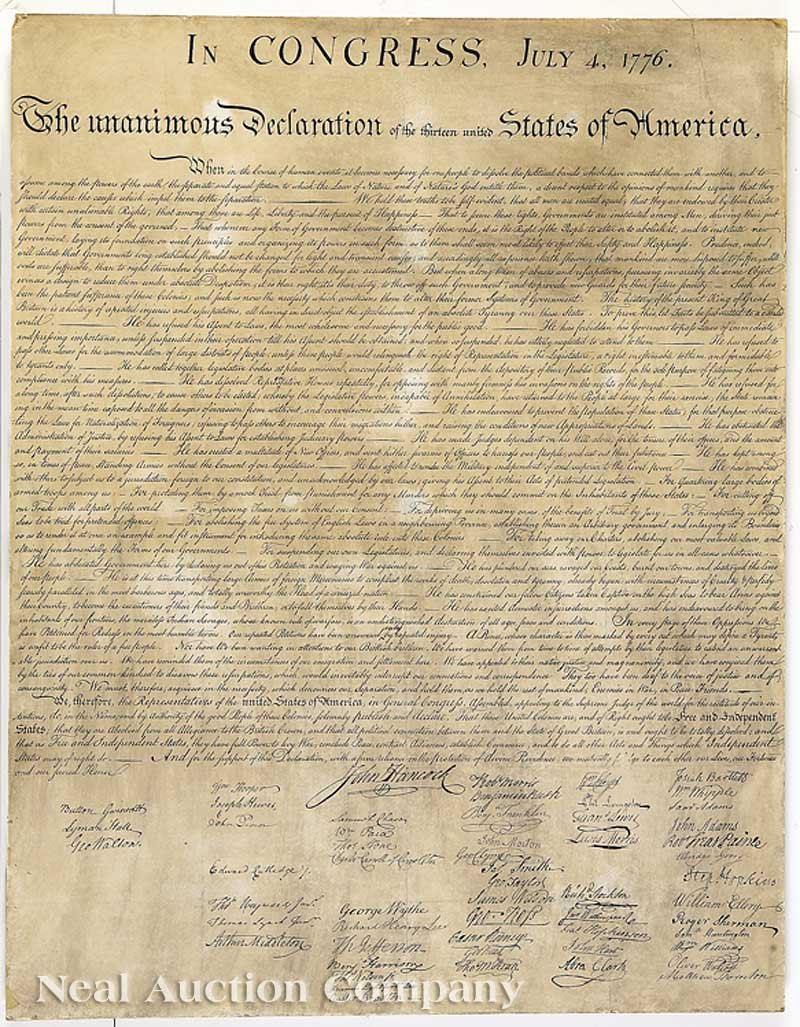 IN CONGRESS, JULY 4, 1776.
The unanimous Declaration of the thirteen united States of America,
When in the Course of human events, it becomes necessary for one people to dissolve the political bands which have connected them with another, and to
assume among the powers of the earth, the separate and equal station to which the Laws of Nature and of Nature's God entitle them, a decent respect to the opinions of mankind requires that they
should declare the causes which impel them to the separation. We hold these truths to be self-evident, that all men are created equal, that they are endowed by their Creator
with certain unalienable Rights, that among these are Life, Liberty and the pursuit of Happiness.— That to secure these rights, Governments are instituted among Men, deriving their just
powers from the consent of the governed,— That whenever any Form of Government becomes destructive of these ends, it is the Right of the People to alter or to abolish it, and to institute new
Government, laying its foundation on such principles and organizing its powers in such form, as to them shall seem most likely to effect their Safety and Happiness. Prudence, indeed,
will dictate that Governments long established should not be changed for light and transient causes; and accordingly all experience hath shewn, that mankind are more disposed to suffer, while
evils are sufferable, than to right themselves by abolishing the forms to which they are accustomed. But when a long train of abuses and usurpations, pursuing invariably the same Object
evinces a design to reduce them under absolute Despotism, it is their right, it is their duty, to throw off such Government, and to provide new Guards for their future security.— Such has
been the patient sufferance of these Colonies; and such is now the necessity which constrains them to alter their former Systems of Government. The history of the present King of Great
Britain is a history of repeated injuries and usurpations, all having in direct object the establishment of an absolute Tyranny over these States. To prove this, let Facts be submitted to a candid
world. He has refused his Assent to Laws, the most wholesome and necessary for the public good. He has forbidden his Governors to pass Laws of immediate
and pressing importance, unless suspended in their operation till his Assent should be obtained; and when so suspended, he has utterly neglected to attend to them. He has refused to
pass other Laws for the accommodation of large districts of people, unless those people would relinquish the right of Representation in the Legislature, a right inestimable to them and formidable
to tyrants only. He has called together legislative bodies at places unusual, uncomfortable, and distant from the depository of their public Records, for the sole purpose of fatiguing them into
compliance with his measures. He has dissolved Representative Houses repeatedly, for opposing with manly firmness his invasions on the rights of the people. He has refused for
a long time, after such dissolutions, to cause others to be elected; whereby the Legislative powers, incapable of Annihilation, have returned to the People at large for their exercise; the State remain-
ing in the mean time exposed to all the dangers of invasion from without, and convulsions within. He has endeavoured to prevent the population of these States; for that purpose obstruc-
ting the Laws for Naturalization of Foreigners; refusing to pass others to encourage their migrations hither, and raising the conditions of new Appropriations of Lands. He has obstructed the
Administration of Justice, by refusing his Assent to Laws for establishing Judiciary powers. He has made Judges dependent on his Will alone, for the tenure of their offices, and the amount
and payment of their salaries. He has erected a multitude of New Offices, and sent hither swarms of Officers to harrass our people, and eat out their substance. He has kept among
us, in times of peace, Standing Armies without the Consent of our legislatures. He has affected to render the Military independent of and superior to the Civil power. He has combined
with others to subject us to a jurisdiction foreign to our constitution, and unacknowledged by our laws; giving his Assent to their Acts of pretended Legislation: For Quartering large bodies of
armed troops among us: For protecting them, by a mock Trial, from punishment for any Murders which they should commit on the Inhabitants of these States: For cutting off
our Trade with all parts of the world: For imposing Taxes on us without our Consent: For depriving us in many cases, of the benefits of Trial by jury: For transporting us beyond
Seas to be tried for pretended offences: For abolishing the free System of English Laws in a neighbouring Province, establishing therein an Arbitrary government, and enlarging its Boundaries
so as to render it at once an example and fit instrument for introducing the same absolute rule into these Colonies: For taking away our Charters, abolishing our most valuable Laws, and
altering fundamentally the Forms of our Governments: For suspending our own Legislatures, and declaring themselves invested with power to legislate for us in all cases whatsoever.
He has abdicated Government here, by declaring us out of his Protection and waging War against us. He has plundered our seas, ravaged our Coasts, burnt our towns, and destroyed the lives
of our people. He is at this time transporting large Armies of foreign Mercenaries to compleat the works of death, desolation and tyranny, already begun with circumstances of Cruelty & perfidy
scarcely paralleled in the most barbarous ages, and totally unworthy the Head of a civilized nation. He has constrained our fellow Citizens taken Captive on the high Seas to bear Arms against
their Country, to become the executioners of their friends and Brethren, or to fall themselves by their Hands. He has excited domestic insurrections amongst us, and has endeavoured to bring on the
inhabitants of our frontiers, the merciless Indian Savages, whose known rule of warfare, is an undistinguished destruction of all ages, sexes and conditions. In every stage of these Oppressions We
have Petitioned for Redress in the most humble terms: Our repeated Petitions have been answered by repeated injury. A Prince, whose character is thus marked by every act which may define a Tyrant,
is unfit to be the ruler of a free people. Nor have We been wanting in attentions to our Brittish brethren. We have warned them from time to time of attempts by their legislature to extend an unwarrant-
able jurisdiction over us. We have reminded them of the circumstances of our emigration and settlement here. We have appealed to their native justice and magnanimity, and we have conjured them
by the ties of our common kindred to disavow these usurpations, which, would inevitably interrupt our connections and correspondence. They too have been deaf to the voice of justice and of
consanguinity. We must, therefore, acquiesce in the necessity, which denounces our Separation, and hold them, as we hold the rest of mankind, Enemies in War, in Peace Friends.
We, therefore, the Representatives of the united States of America, in General Congress, Assembled, appealing to the Supreme Judge of the world for the rectitude of our in-
tentions, do, in the Name, and by Authority of the good People of these Colonies, solemnly publish and declare, That these United Colonies are, and of Right ought to be Free and Independent
States; that they are Absolved from all Allegiance to the British Crown, and that all political connection between them and the State of Great Britain, is and ought to be totally dissolved; and
that as Free and Independent States, they have full Power to levy War, conclude Peace, contract Alliances, establish Commerce, and to do all other Acts and Things which Independent
States may of right do. And for the support of this Declaration, with a firm reliance on the protection of divine Providence, we mutually pledge to each other our Lives, our Fortunes
and our sacred Honor.
John Hancock
Button Gwinnett
Lyman Hall
Geo Walton.
Wm Hooper
Joseph Hewes,
John Penn
Edward Rutledge
Thos Heyward Junr.
Thomas Lynch Junr.
Arthur Middleton
Samuel Chase
Wm Paca
Thos Stone
Charles Carroll of Carrollton
George Wythe
Richard Henry Lee
Th Jefferson
Benj Harrison
Robt Morris
Benjamin Rush
Benj Franklin
John Morton
Geo Clymer
Jas Smith
Geo Taylor
James Wilson
Geo Ross
Caesar Rodney
Geo Read
Tho M:Kean
Phil Livingston
Lewis Morris
Richd Stockton
Fras Hopkinson
John Hart
Abra Clark
Josiah Bartlett
Wm Whipple
Saml Adams
John Adams
Robt Treat Paine
Elbridge Gerry
Step Hopkins
William Ellery
Roger Sherman
Saml Huntington
Wm Williams
Oliver Wolcott
Matthew Thornton
Neal Auction Company